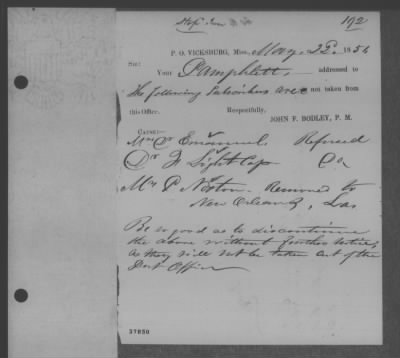 192
P. O. VICKSBURG, Miss., May 22d 1856
Sir:
Your Pamphlett, addressed to
The following Subscribers are not taken from
this Office.
Respectfully,
JOHN F. BODLEY, P. M.
CAUSE:
Mr Emanuel Refused
Dr Lightcap Do
Mr P Newton Removed to
New Orleans, Las
Be so good as to discontinue
the above without further notice,
as they will not be taken out of the
Post Office
37850